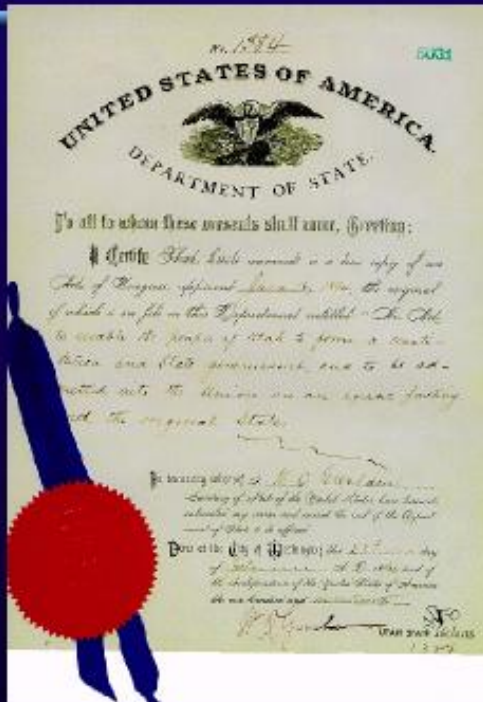 No. 1384
5031
UNITED STATES OF AMERICA.
DEPARTMENT OF STATE.
To all to whom these presents shall come, Greeting:
I Certify That hereto annexed is a true copy of an
Act of Congress, approved the original
of which is on file in this Department entitled "An Act
to enable the people of Utah to form a consti-
tution and State government, and to be ad-
mitted into the Union on an equal footing
with the original States
In testimony whereof, I, W. Q. Gresham
Secretary of State of the United States, have hereunto
subscribed my name and caused the seal of the Depart-
ment of State to be affixed.
Done at the City of Washington, this day
of A.D. and of
the Independence of the United States of America
the one hundred and
UTAH STATE